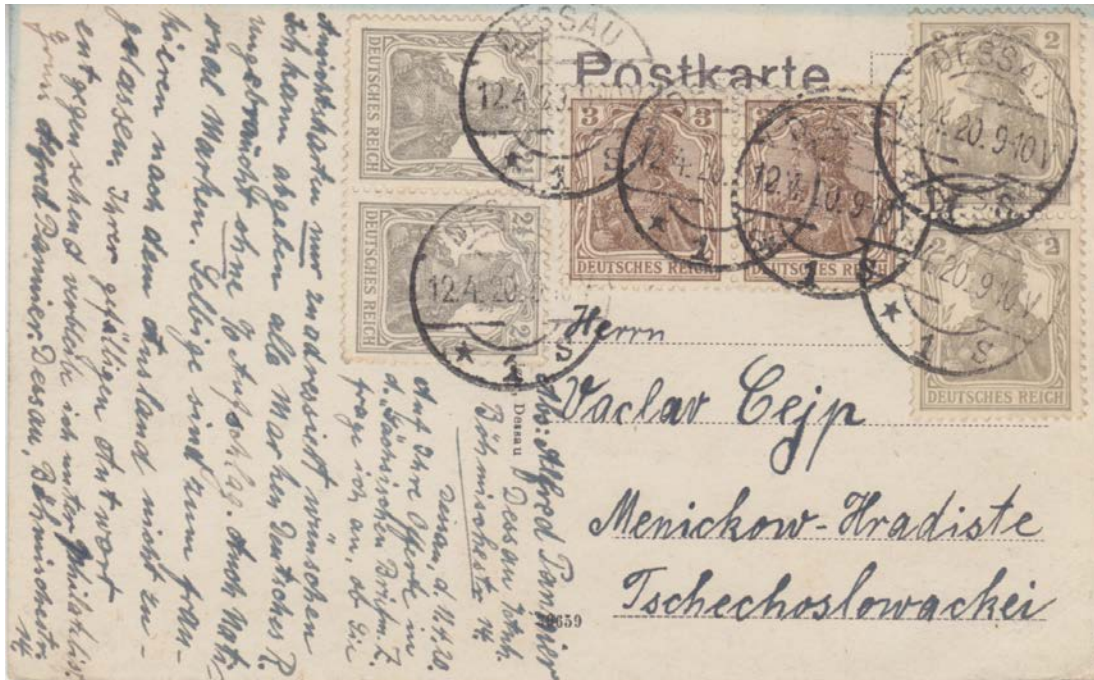 Postkarte
2
2
DEUTSCHES REICH
DEUTSCHES REICH
2½
2½
DEUTSCHES REICH
DEUTSCHES REICH
3 3
3
DEUTSCHES REICH
DEUTSCHES REICH
DESSAU
12.4.20
★ 1 S
12.4.20
★ 1 S
12.4.20
★ 1
12.4.20.9-10V
1 S
DESSAU
12.4.20.9-10V
★ 1 S
20.9-10V
★ 1 S
Herrn
Vaclav Cejp
Menickow-Hradiste
Tschechoslowackei
Dessau
39659
Abs: Alfred Pannier
Dessau Anh.
Böhmischestr. 14.
Dessau, d. 11.4.20.
Auf Ihre Offerte in
d. Sächsischen Briefm. Z.
frage ich an, ob Sie
Ansichtskarten nur zu adressiert wünschen
Ich kann abgeben alle Marken Deutsches R.
ungebraucht ohne % Aufschlag. Auch Nati-
onal Marken. Selbige sind zum fran-
kieren nach dem Ausland nicht zu-
gelassen. Ihrer gefälligen Antwort
entgegensehend verbleibe ich unter Philatelist.
Gruss Alfred Pannier. Dessau, Böhmischestr.
14.